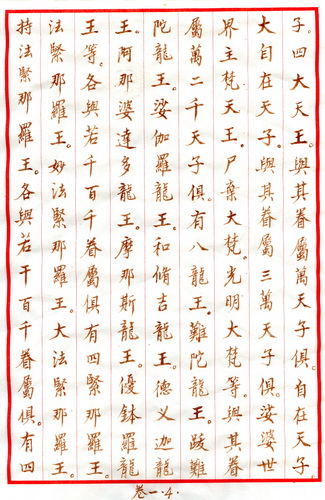 子。四大天王。與其眷屬萬天子俱。自在天子。
大自在天子。與其眷屬三萬天子俱。娑婆世
界主梵天王。尸棄大梵。光明大梵等。與其眷
屬萬二千天子俱。有八龍王。難陀龍王。跋難
陀龍王。娑伽羅龍王。和脩吉龍王。德叉迦龍
王。阿那婆達多龍王。摩那斯龍王。優鉢羅龍
王等。各與若干百千眷屬俱。有四緊那羅王。
法緊那羅王。妙法緊那羅王。大法緊那羅王。
持法緊那羅王。各與若干百千眷屬俱。有四
卷一·4·